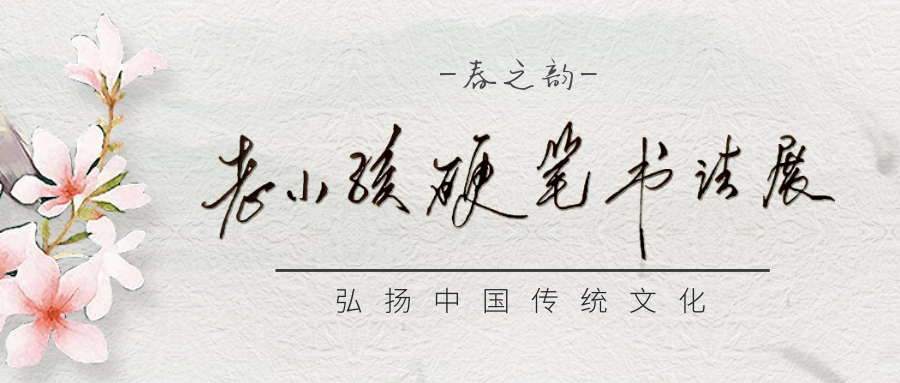 -春之韵-
老小孩硬笔书法展
弘扬中国传统文化